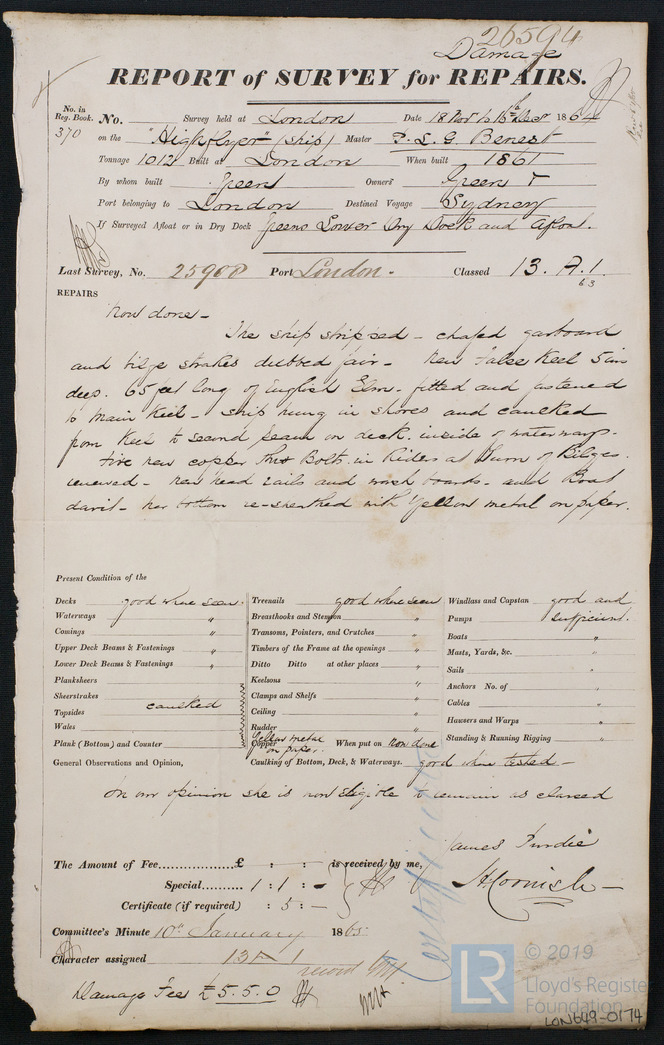 26594
Damage
REPORT of SURVEY for REPAIRS.
No. in Reg. Book. 370 No. Survey held at London Date 18 Nov to 16th Decr 1864
on the "Highflyer" (ship) Master P. L. G. Benest
Tonnage 1012 Built at London When built 1861
By whom built Green Owners Green
Port belonging to London Destined Voyage Sydney
If Surveyed Afloat or in Dry Dock Greens Lower Dry Dock and Afloat.
Last Survey, No. 25908 Port London. Classed 13. A.1. 63
REPAIRS
Now done-
The ship stripped - chafed garboard
and bilge strakes dubbed fair - New False Keel 5 in
deep. 65 feet long of English Elm - fitted and fastened
to Main Keel - ship hung in shores and caulked
from Keel to second seam on deck. inside of waterways.
Five new copper Thro Bolts in Riders at Turn of Bilges
renewed - new head rails and wash boards - and Boat
davit - her bottom re-sheathed with Yellow metal on paper.
Present Condition of the
Decks good where seen.
Waterways "
Comings "
Upper Deck Beams & Fastenings "
Lower Deck Beams & Fastenings "
Planksheers
Sheerstrakes
Topsides caulked
Wales
Plank (Bottom) and Counter
Treenails good where seen
Breasthooks and Stemson "
Transoms, Pointers, and Crutches "
Timbers of the Frame at the openings "
Ditto Ditto at other places "
Keelsons "
Clamps and Shelfs "
Ceiling "
Rudder "
Copper Yellow metal on paper. When put on Now done
Windlass and Capstan good and
Pumps sufficient.
Boats "
Masts, Yards, &c. "
Sails "
Anchors No. of "
Cables "
Hawsers and Warps "
Standing & Running Rigging "
General Observations and Opinion, Caulking of Bottom, Deck, & Waterways. good when tested -
In our opinion she is now Eligible to remain as classed
James Purdie
The Amount of Fee £ : : - is received by me,
Special 1 : 1 : -
H Cornish
Certificate (if required) : 5 : -
Committee's Minute 10th January 1865
Character assigned 13 A 1
record YM.
Damage Fees £ 5.5.0
© 2019
LR Lloyd's Register
Foundation
LON649-0174